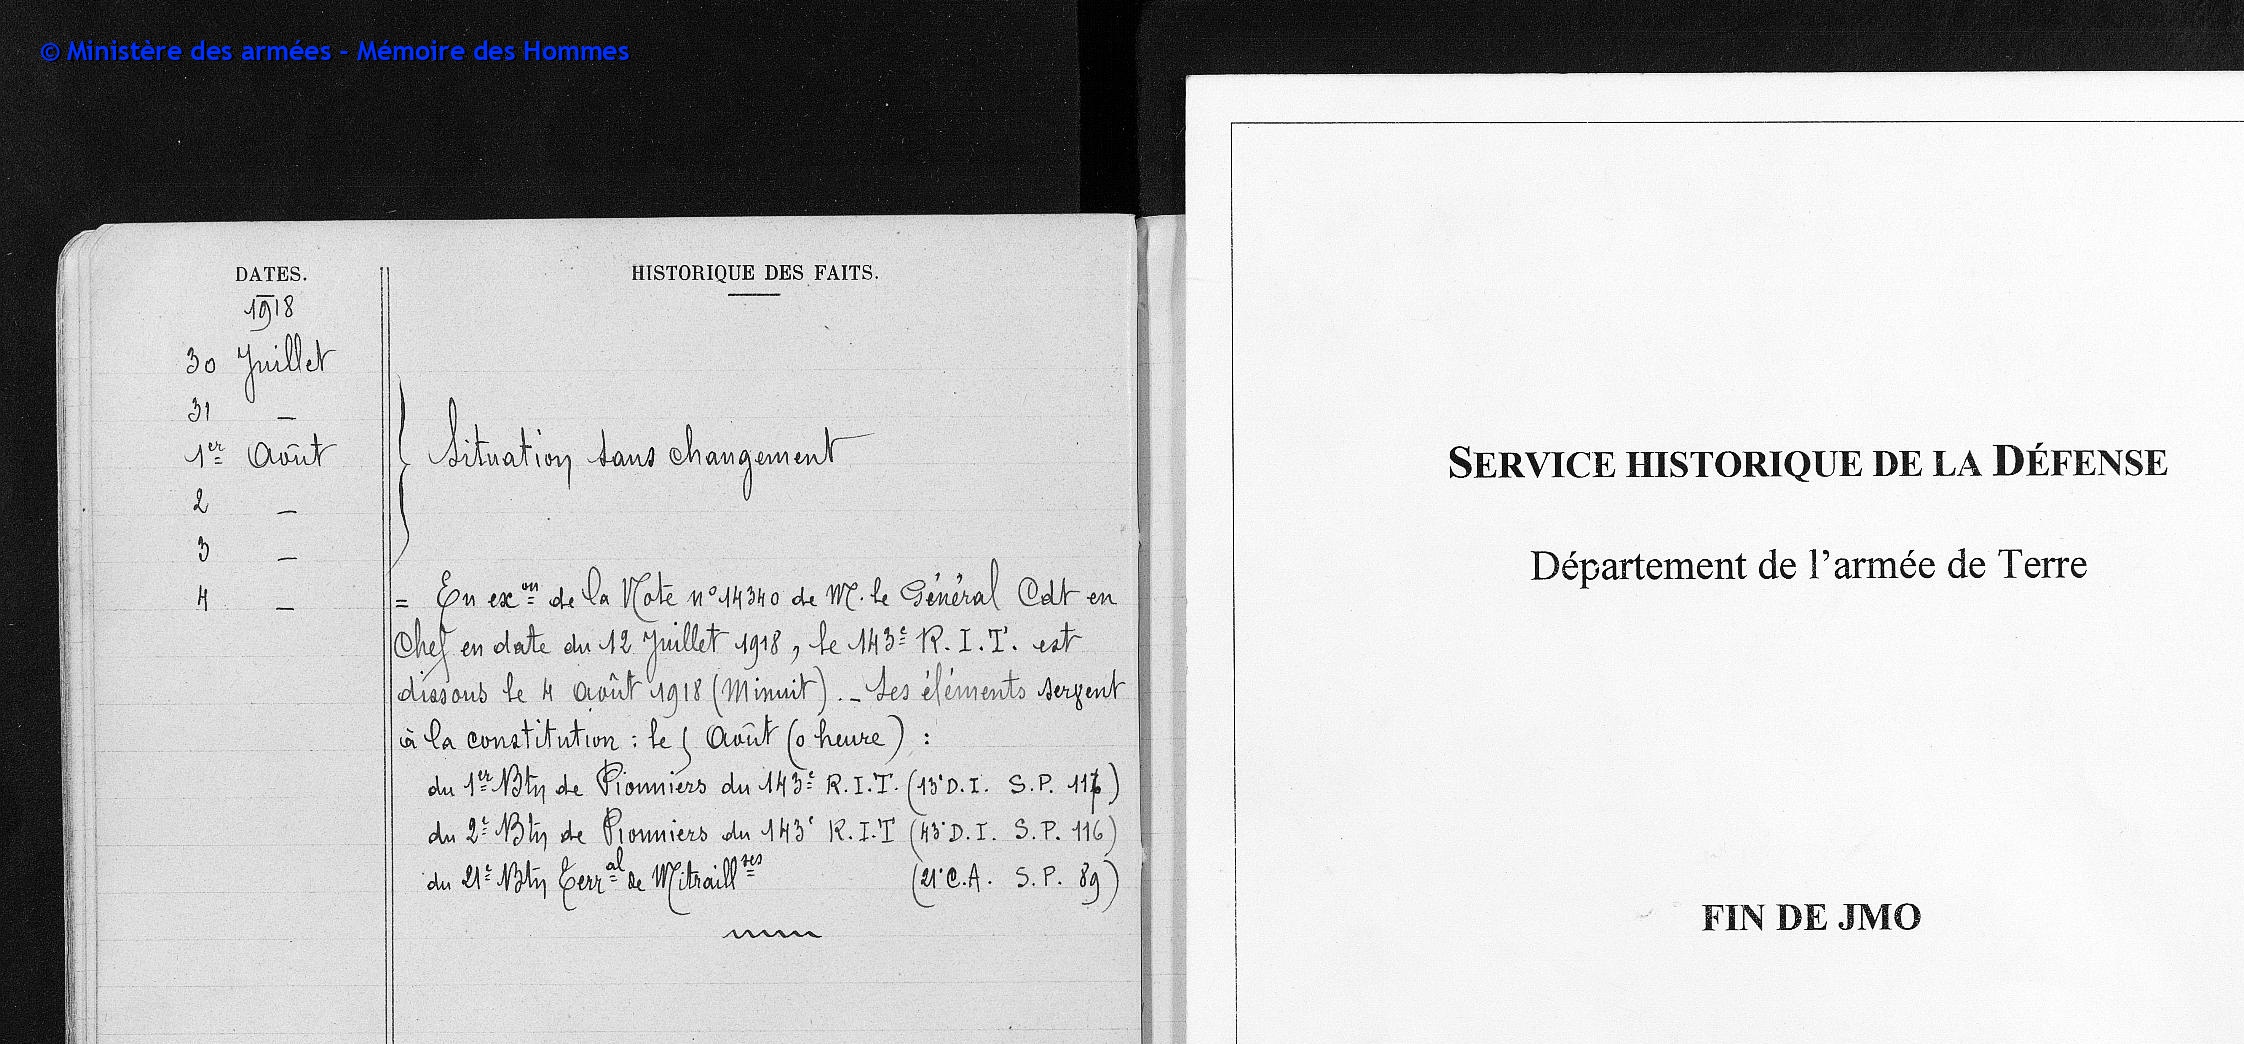 © Ministère des armées - Mémoire des Hommes
DATES.
HISTORIQUE DES FAITS.
1918
30 Juillet
31 —
1er Août
Situation sans changement
2 —
3 —
4 —
= En exon de la Note n° 14340 de M. le Général Cdt en
Chef en date du 12 Juillet 1918, le 143e R.I.T. est
dissous le 4 Août 1918 (Minuit). — Ses éléments servent
à la constitution : le 5 Août (0 heure) :
du 1er Btn de Pionniers du 143e R.I.T. (13e D.I. S.P. 117)
du 2e Btn de Pionniers du 143e R.I.T (43e D.I. S.P. 116)
du 21e Btn Terral de Mitraillses (21e C.A. S.P. 89)
SERVICE HISTORIQUE DE LA DÉFENSE
Département de l'armée de Terre
FIN DE JMO